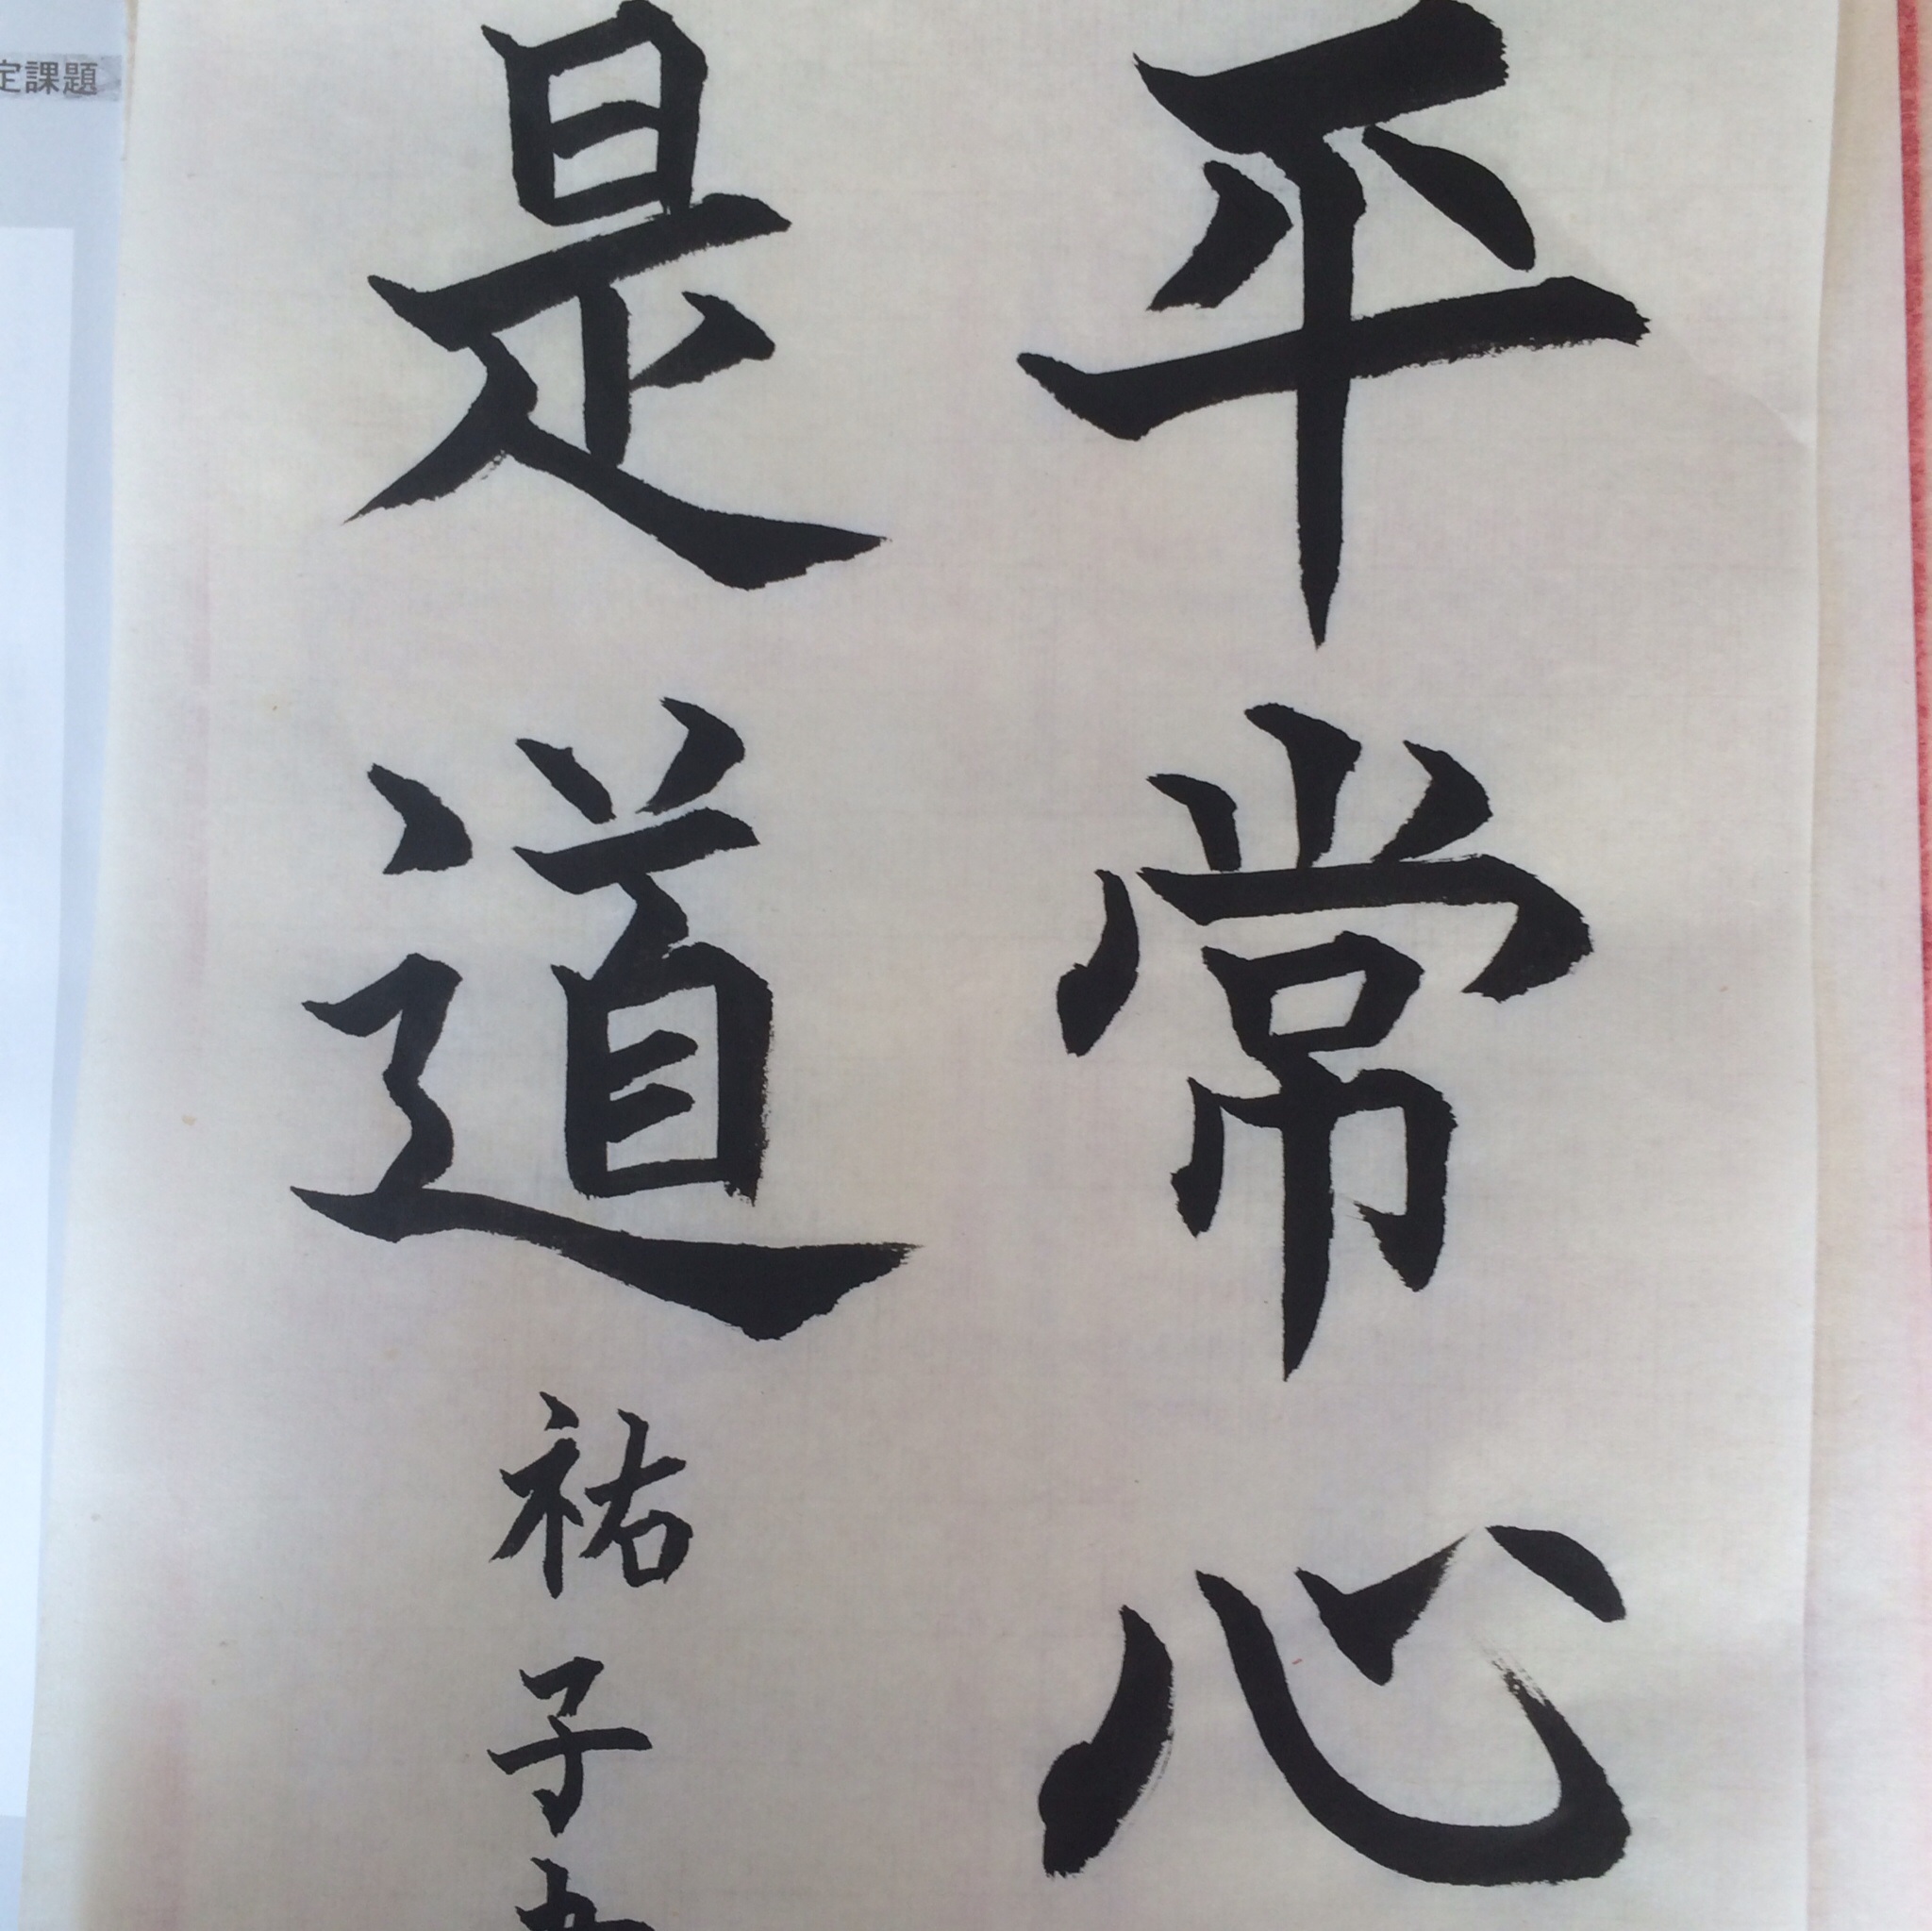 平常心
是道
祐子
定課題